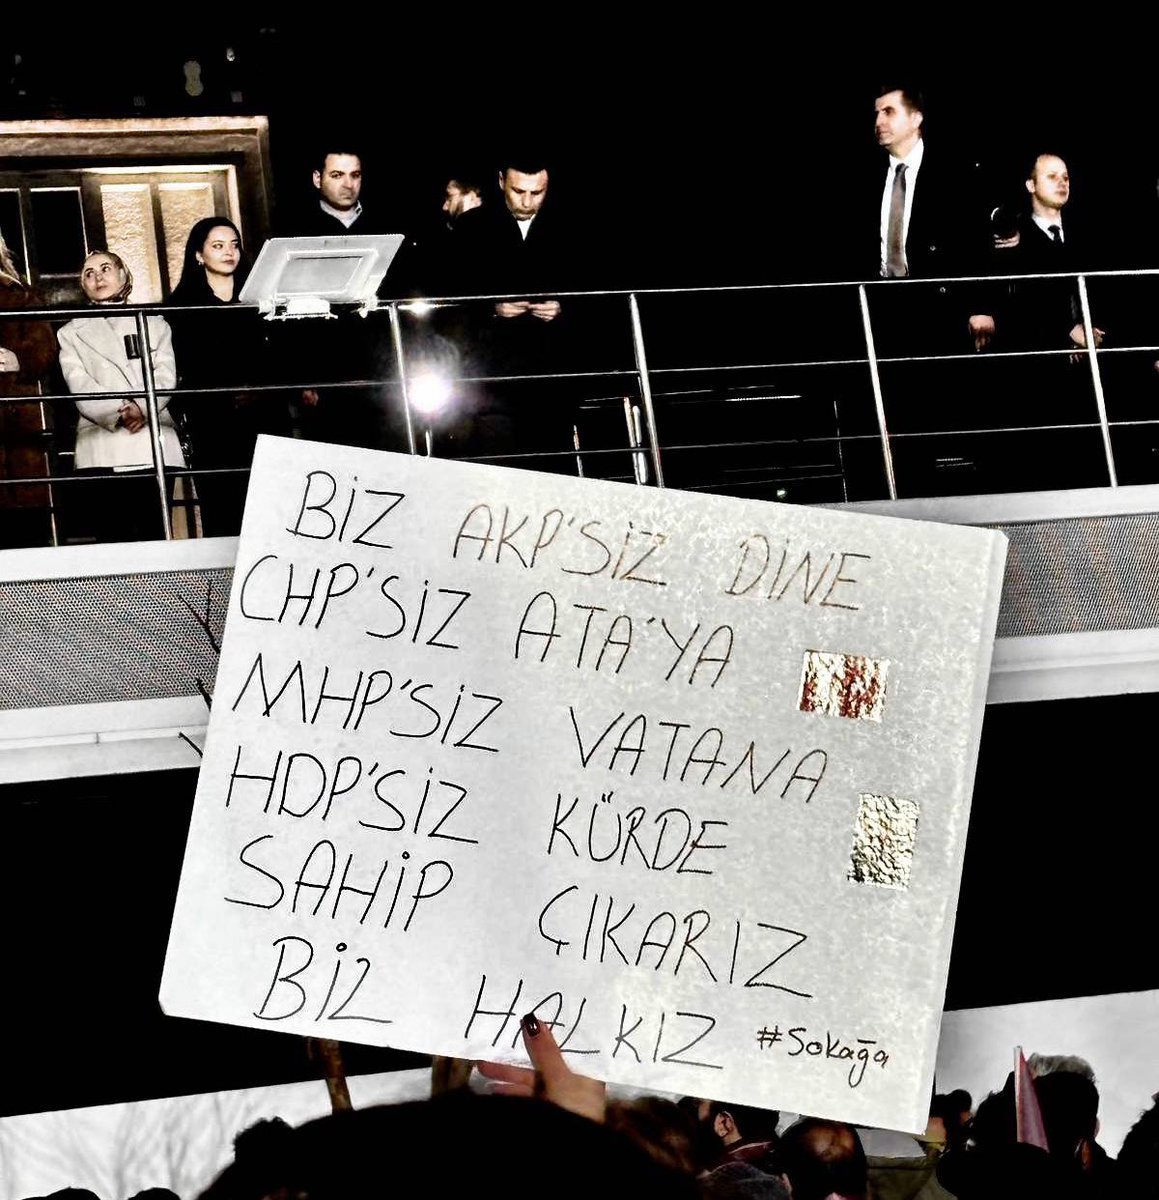 BİZ AKP'SİZ DİNE
CHP'SİZ ATA'YA
MHP'SİZ VATANA
HDP'SİZ KÜRDE
SAHİP ÇIKARIZ
BİZ HALKIZ #Sokağa